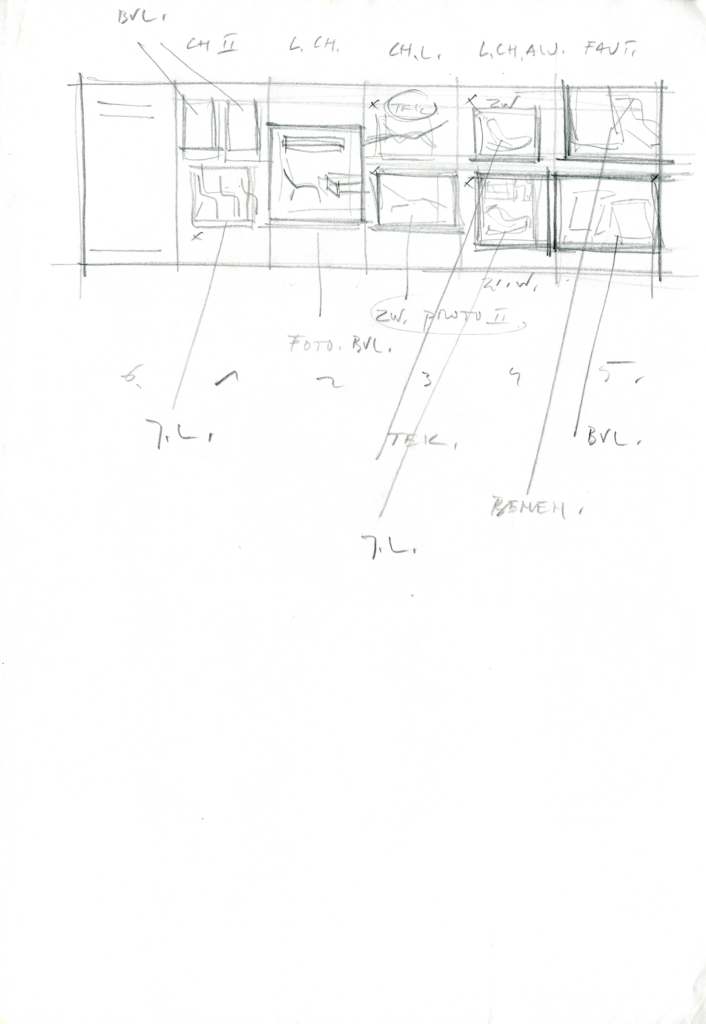 BVL.
CH II L.CH. CH.L. L.CH.ALU. FAUT.
TEK. ZW
ZW.
ZW. PROTO II
FOTO. BVL.
6. 1 2 3 4 5.
J.L. TEK. BVL.
BENEN.
J.L.